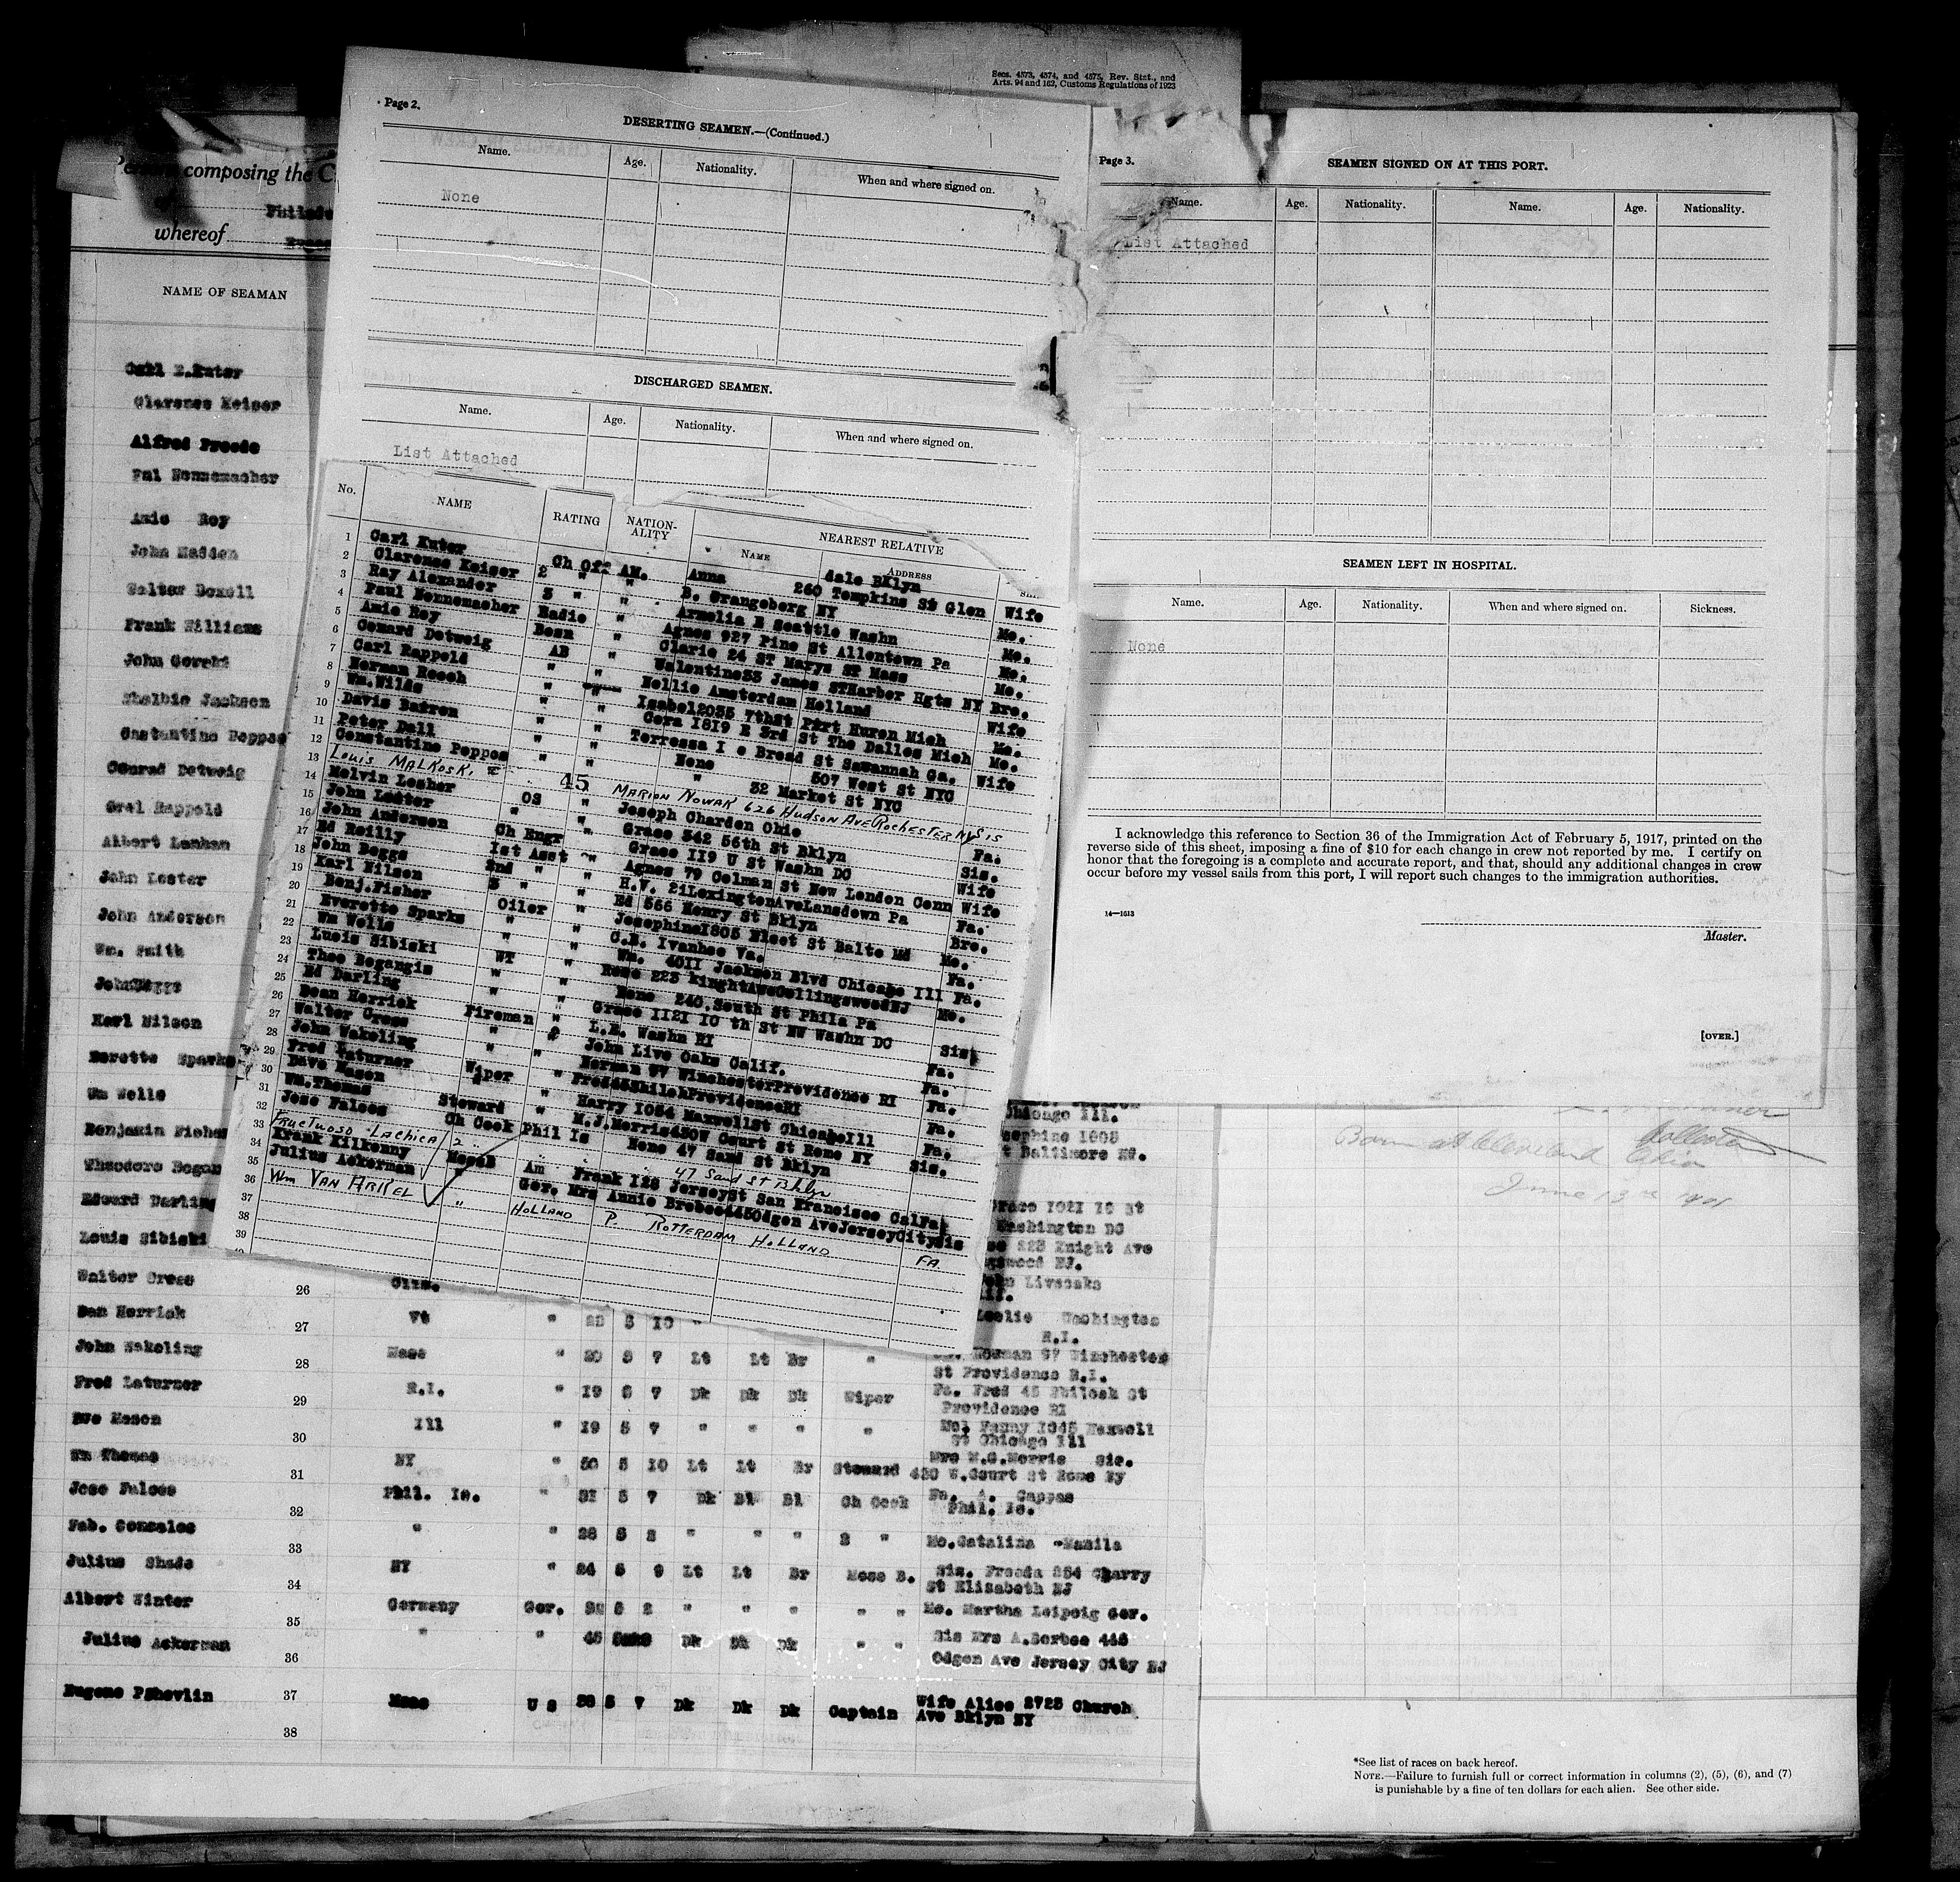 Secs. 4573, 4574, and 4575, Rev. Stat., and
Arts. 94 and 162, Customs Regulations of 1923
Page 2.
DESERTING SEAMEN.—(Continued.)
Name. Age. Nationality. When and where signed on.
None
DISCHARGED SEAMEN.
Name. Age. Nationality. When and where signed on.
List Attached
No. NAME RATING NATION-ALITY NEAREST RELATIVE
NAME ADDRESS
1 Carl Kuter Ch Off AM. Anna 260 Tompkins St Glen dale BKlyn Wife
2 Clarence Keiser 2 " " B. Orangeberg NY Mo.
3 Ray Alexander 3 " " Armelia E Seattle Washn Mo.
4 Paul Nonnemacher Radio " Agnes 927 Pine St Allentown Pa Mo.
5 Amie Roy Bosn " Clarie 24 ST Marys ST Mass Mo.
6 Conard Detweig AB " Valentine 33 James ST Harbor Hgts NY Bro.
7 Carl Rappold " " Nellie Amsterdam Holland Wife
8 Herman Rooch " " Isabel 2035 7thSt Port Huron Mich Mo.
9 Wm. Wilds " " Cora 1819 E 3rd St The Dalles Mich Mo.
10 Davis Barron " " Terressa I e Broad St Savannah Ga. Wife
11 Peter Dall " " None 507 West St NYC
12 Constantine Poppos " " " 32 Market St NYC
13 Louis MALKOSKI 45 MARION NOWAK 626 HUDSON AVE ROCHESTER NY SIS
14 Melvin Lesher OS " Joseph Charden Ohio Fa.
15 John Lester " " Grace 342 56th St Bklyn Sis.
16 John Andersen Ch Engr " Grace 119 U St Washn DC Wife
17 Ed Reilly 1st Asst " Agnes 79 Colman St New London Conn Wife
18 John Boggs 2nd " " H.V. 21LexingtonAveLansdown Pa Fa.
19 Karl Nilson 3 " " Ed 566 Henry St Bklyn Bro.
20 Benj.Fisher Oiler " Josephine1805 Fleet St Balto Md Mo.
21 Everette Sparks " " C.E. Ivanhoe Va. Fa.
22 Wm Wells " " Wm. 4011 Jackson Blvd Chicago Ill Fa.
23 Louis Sibiski WT " Rose 223 KinghtAveCollingswoodNJ Mo.
24 Theo Bogangis " " None 240 South St Phila Pa
25 Ed Darling " " Grace 1121 10 th St NW Washn DC Sis
26 Dean Herrick Fireman " L.E. Washn RI Fa.
27 Walter Cross " " John Live Oaks Calif. Fa.
28 John Wakeling " " Herman 97 WinchesterProvidence RI Fa.
29 Fred Laturner Wiper " Fred45ShilohProvidenceRI Fa.
30 Dave Mason " " Harry 1054 MaxwellSt ChicagoIll Fa.
31 Wm.Thomas Steward " M.J.Morris430W Court St Rome NY Sis.
32 Jose Falces Ch Cook Phil Is None 47 Sand St Bklyn
33 FRUCTUOSO LACHICA 2 " " " 47 Sand St Bklyn
34 Frank Kilkenny MessB Am Frank 128 JerseySt San Francisco CalFa
35 Julius Ackerman " Ger. Mrs Annie Brebee445Odgen AveJerseyCitySis
36 Wm VAN ARKEL " HOLLAND P. ROTTERDAM HOLLAND FA
37
38
39
Page 3.
SEAMEN SIGNED ON AT THIS PORT.
Name. Age. Nationality. Name. Age. Nationality.
List Attached
SEAMEN LEFT IN HOSPITAL.
Name. Age. Nationality. When and where signed on. Sickness.
None
I acknowledge this reference to Section 36 of the Immigration Act of February 5, 1917, printed on the
reverse side of this sheet, imposing a fine of $10 for each change in crew not reported by me. I certify on
honor that the foregoing is a complete and accurate report, and that, should any additional changes in crew
occur before my vessel sails from this port, I will report such changes to the immigration authorities.
14—1613
Master.
[OVER.]
composing the C
Philade
whereof
NAME OF SEAMAN
Carl E.Kuter
Clarence Keiser
Alfred Preede
Pal Nonnemacher
Amie Roy
John Madden
Walter Doxell
Frank Williams
John Gorski
Shelbie Jackson
Constantine Poppos
Conrad Detweig
Carl Rappold
Albert Lanham
John Lester
John Anderson
Wm. Smith
John Boggs
Karl Nilson
Everette Sparks
Wm Wells
Benjamin Fisher
Theodore Bogan
Edward Darling
Louis Sibiski
Chicago Ill.
Josephine 1808
t Baltimore Md.
Grace 1021 10 St
Washington DC
223 Knight Ave
Walter Cross 26 John Liveoaks
Dan Herrick 27 Wt " 22 5 10 " Leslie Washington
R.I.
John Wakeling 28 Mass " 20 5 7 Lt Lt Br " Herman 97 Winchester
St Providence R.I.
Fred Laturner 29 R.I. " 19 5 7 Dk Dk Dk Wiper Fa. Fred 45 Shiloh St
Providence RI
Dve Mason 30 Ill " 19 5 7 " " " " Mo. Fanny 1045 Maxwell
St Chicago Ill
Wm Thomas 31 NY " 50 5 10 Lt Lt Br Steward Mrs M.G.Morris Sis.
430 W.Court St Rome Ny
Jose Falces 32 Phil. Is. " 31 5 7 Dk Bl Bl Ch Cook Fa. A. Cappas
Phil. Is.
Fab. Gonzales 33 " " 28 5 2 " " " 2 " Mo.Catalina -Manila
Julius Shade 34 NY " 24 5 9 Lt Lt Br Mess B. Sis. Freeda 254 Charry
St Elizabeth NJ
Albert Winter 35 Germany Ger. 5 2 " " " " " Mo. Martha Leipzig Ger.
Julius Ackerman 36 " " 45 Dk Dk Dk " " Sis Mrs A.Serbee 445
Odgen Ave Jersey City NJ
Eugene PShovlin 37 Mass U S 38 5 7 Dk Dk Dk Captain Wife Alice 2725 Church
Ave Bklyn NY
38
Born at Cleveland Ohio
June 13
*See list of races on back hereof.
NOTE.—Failure to furnish full or correct information in columns (2), (5), (6), and (7)
is punishable by a fine of ten dollars for each alien. See other side.